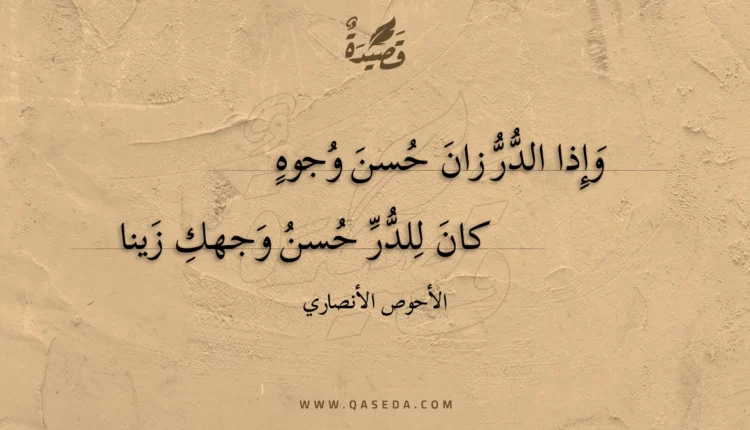 قَصِيدَةٌ
وَإِذا الدُّرُّ زانَ حُسنَ وُجوهٍ
كانَ لِلدُّرِّ حُسنُ وَجهكِ زَينا
الأحوص الأنصاري
WWW.QASEDA.COM